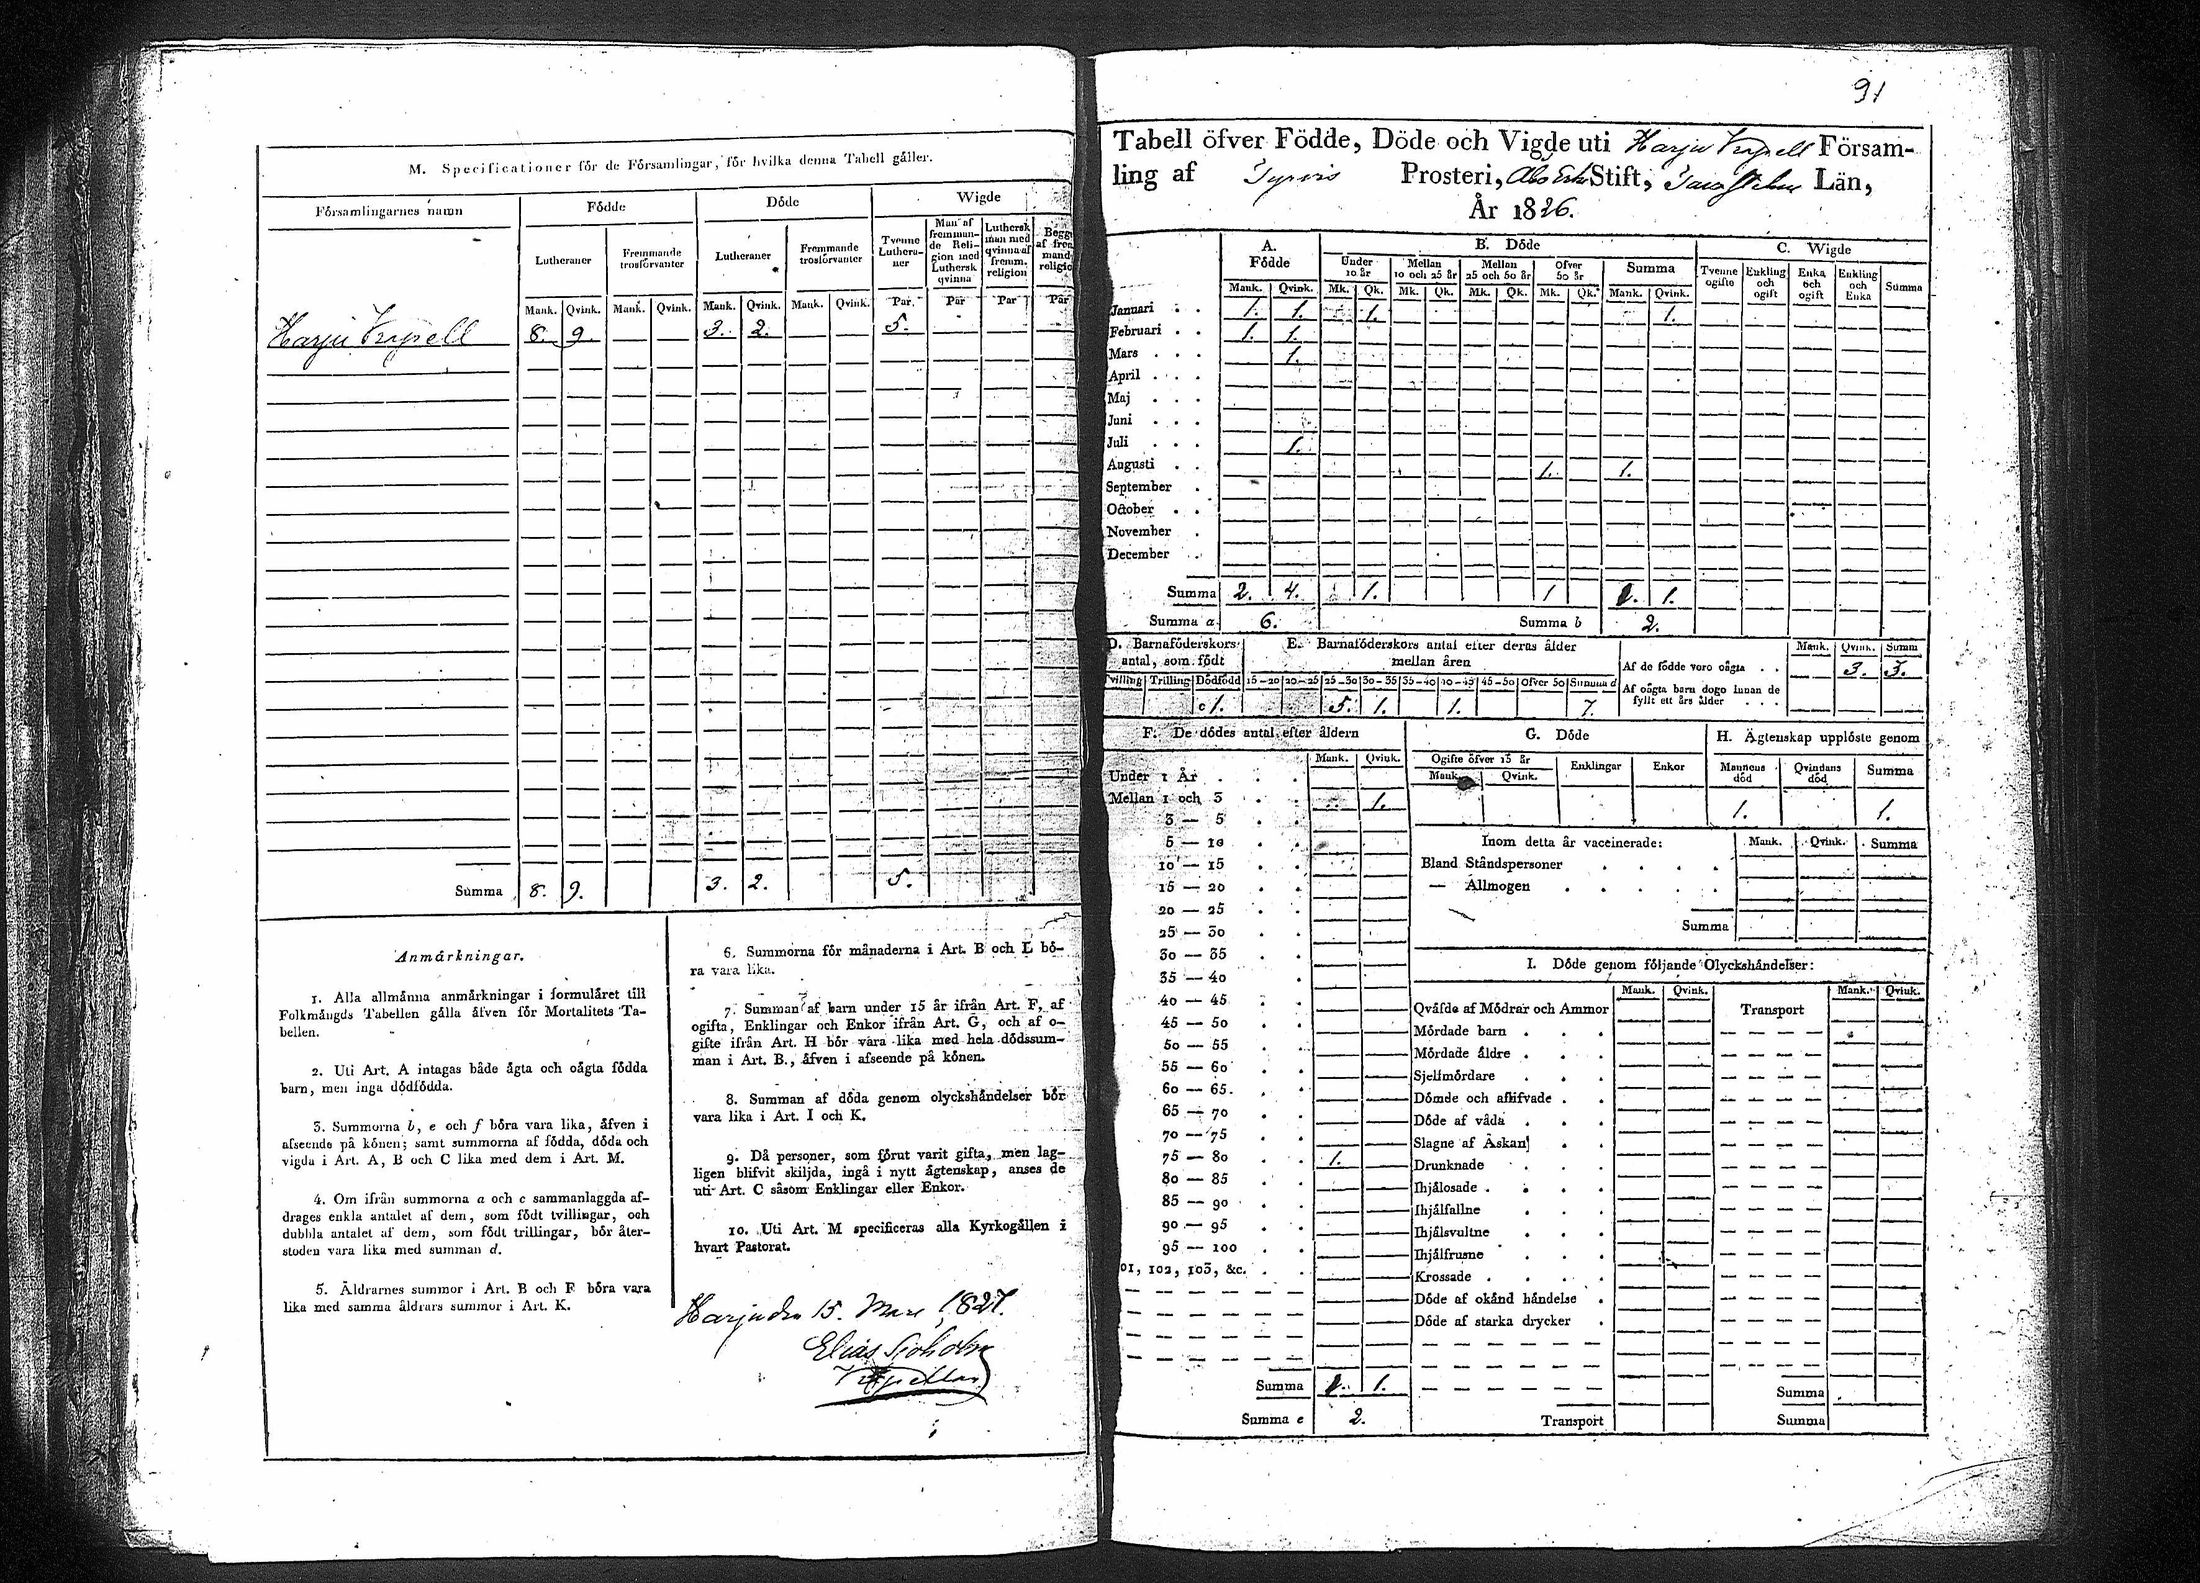 M. Specificationer för de Församlingar, för hvilka denna Tabell gäller.
Församlingarnes namn
Födde
Döde
Wigde
Lutheraner
Fremmande trosförvanter
Lutheraner
Fremmande trosförvanter
Tvenne Lutheraner
Man af fremmande Religion med Luthersk qvinna
Luthersk man med qvinna af fremm. religion
Mank. Qvink. Mank. Qvink. Mank. Qvink. Mank. Qvink. Par. Par Par Par
Harju Kapell 8. 9. 3. 2. 5.
Summa 8. 9. 3. 2. 5.
Anmärkningar.
1. Alla allmänna anmärkningar i formuläret till
Folkmängds Tabellen gälla äfven för Mortalitets Ta-
bellen.
2. Uti Art. A intagas både ägta och oägta födda
barn, men inga dödfödda.
3. Summorna b, e och f böra vara lika, äfven i
afseende på könen; samt summorna af födda, döda och
vigda i Art. A, B och C lika med dem i Art. M.
4. Om ifrån summorna a och c sammanlaggda af-
drages enkla antalet af dem, som födt tvillingar, och
dubbla antalet af dem, som födt trillingar, bör åter-
stoden vara lika med summan d.
5. Äldrarnes summor i Art. B och F böra vara
lika med samma åldrars summor i Art. K.
6. Summorna för månaderna i Art. B och L bö-
ra vara lika.
7. Summan af barn under 15 år ifrån Art. F, af
ogifta, Enklingar och Enkor ifrån Art. G, och af o-
gifte ifrån Art. H bör vara lika med hela dödssum-
man i Art. B., äfven i afseende på könen.
8. Summan af döda genom olyckshändelser bör
vara lika i Art. I och K.
9. Då personer, som förut varit gifta, men lag-
ligen blifvit skiljda, ingå i nytt ägtenskap, anses de
uti Art. C såsom Enklingar eller Enkor.
10. Uti Art. M specificeras alla Kyrkogällen i
hvart Pastorat.
15. Mars 1827.
Elias Sjöholm
91
Tabell öfver Födde, Döde och Vigde uti Harju Kapell Försam-
ling af Tyrvis Prosteri, Åbo Erke Stift, Län,
År 1826.
A. Födde
B. Döde
C. Wigde
Under 10 år
Mellan 10 och 25 år
Mellan 25 och 50 år
Öfver 50 år
Summa
Tvenne ogifte
Enkling och ogift
Enka och ogift
Enkling och Enka
Summa
Mank. Qvink. Mk. Qk. Mk. Qk. Mk. Qk. Mk. Qk. Mank. Qvink.
Januari 1. 1. 1. 1.
Februari 1. 1.
Mars 1.
April
Maj
Juni
Juli 1.
Augusti 1. 1.
September
October
November
December
Summa 2. 4. 1. 1 1. 1.
Summa a 6. Summa b 2.
D. Barnaföderskors antal, som födt
E. Barnaföderskors antal efter deras ålder mellan åren
Mank. Qvink. Summ
Af de födde voro oägta 3. 3.
Tvilling Trilling Dödfödd 15-20 20-25 25-30 30-35 35-40 40-45 45-50 Öfver 50 Summa d
Af oägta barn dogo innan de
fyllt ett års ålder
c 1. 5. 1. 1. 7.
F. De dödes antal efter åldern
Mank. Qvink.
Under 1 År
Mellan 1 och 3 1.
3 — 5
5 — 10
10 — 15
15 — 20
20 — 25
25 — 30
30 — 35
35 — 40
40 — 45
45 — 50
50 — 55
55 — 60
60 — 65
65 — 70
70 — 75
75 — 80 1.
80 — 85
85 — 90
90 — 95
95 — 100
01, 102, 103, &c.
Summa 1. 1.
Summa e 2.
G. Döde
Ogifte öfver 15 år
Mank. Qvink.
Enklingar
Enkor
H. Ägtenskap upplöste genom
Mannens död
Qvinnans död
Summa
1. 1.
Inom detta år vaccinerade: Mank. Qvink. Summa
Bland Ståndspersoner
— Allmogen
Summa
I. Döde genom följande Olyckshändelser:
Mank. Qvink. Mank. Qvink.
Qväfde af Mödrar och Ammor Transport
Mördade barn
Mördade äldre
Sjelfmördare
Dömde och aflifvade
Döde af våda
Slagne af Åskan
Drunknade
Ihjälosade
Ihjälfallne
Ihjälsvultne
Ihjälfrusne
Krossade
Döde af okänd händelse
Döde af starka drycker
Summa
Transport Summa